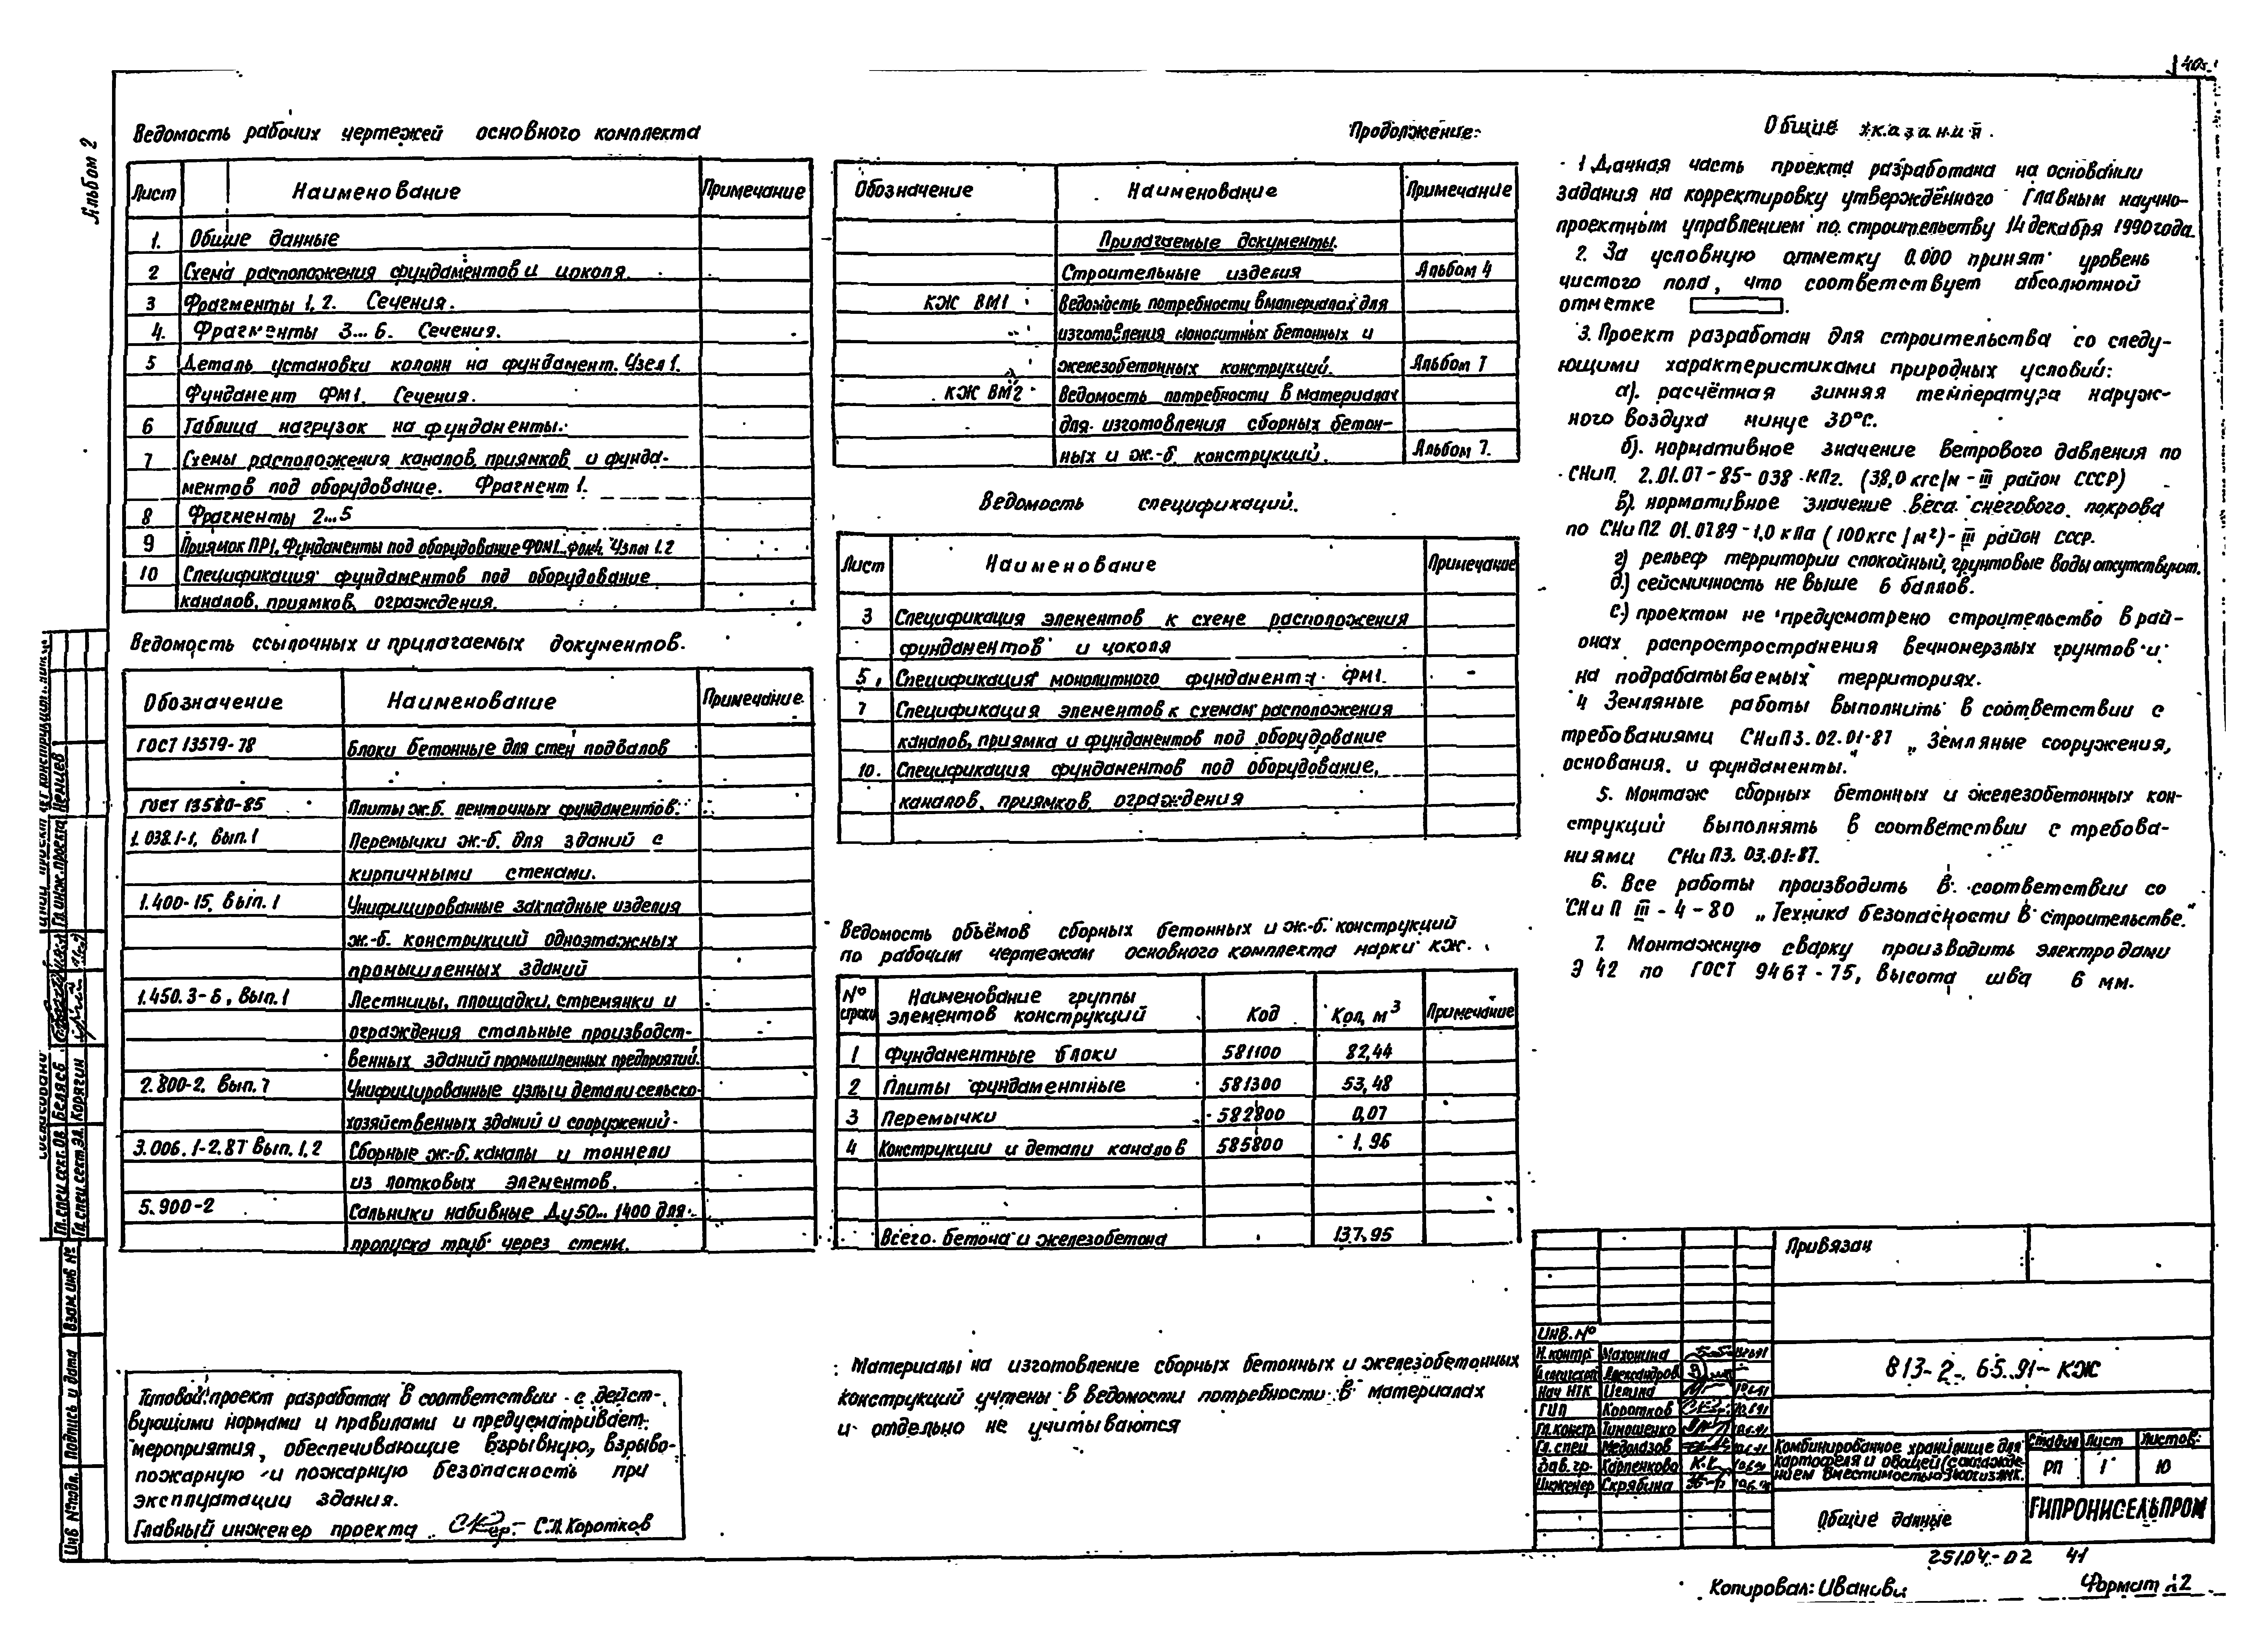 Альбом 2
Ведомость рабочих чертежей основного комплекта
Лист Наименование Примечание
1. Общие данные
2 Схема расположения фундаментов и цоколя.
3 Фрагменты 1, 2. Сечения.
4. Фрагменты 3...6. Сечения.
5 Деталь установки колонн на фундамент. Узел 1.
Фундамент ФМ1. Сечения.
6 Таблица нагрузок на фундаменты.
7 Схемы расположения каналов, приямков и фунда-
ментов под оборудование. Фрагмент 1.
8 Фрагменты 2...5
9 Приямок ПР1, Фундаменты под оборудование ФОМ1...ФОМ4. Узлы 1.2
10 Спецификация фундаментов под оборудование
каналов, приямков, ограждения.
Ведомость ссылочных и прилагаемых документов.
Обозначение Наименование Примечание
ГОСТ 13579-78 Блоки бетонные для стен подвалов
ГОСТ 13580-85 Плиты ж.б. ленточных фундаментов.
1.038.1-1, Вып.1 Перемычки ж.-б. для зданий с
кирпичными стенами.
1.400-15, Вып.1 Унифицированные закладные изделия
ж.-б. конструкций одноэтажных
промышленных зданий
1.450.3-6, Вып.1 Лестницы, площадки, стремянки и
ограждения стальные производст-
венных зданий промышленных предприятий.
2.800-2. Вып.7 Унифицированные узлы и детали сельско-
хозяйственных зданий и сооружений.
3.006.1-2.87 Вып.1,2 Сборные ж.-б. каналы и тоннели
из лотковых элементов.
5.900-2 Сальники набивные Ду50...1400 для
пропуска труб через стены.
Типовой проект разработан в соответствии с дейст-
вующими нормами и правилами и предусматривает
мероприятия, обеспечивающие взрывную, взрыво-
пожарную и пожарную безопасность при
эксплуатации здания.
Главный инженер проекта С.П. Коротков
Продолжение.
Обозначение Наименование Примечание
Прилагаемые документы.
Строительные изделия Альбом 4
КЖ ВМ1 Ведомость потребности в материалах для
изготовления монолитных бетонных и
железобетонных конструкций. Альбом 7
КЖ ВМ2 Ведомость потребности в материалах
для изготовления сборных бетон-
ных и ж.-б. конструкций. Альбом 7.
Ведомость спецификаций.
Лист Наименование Примечание
3 Спецификация элементов к схеме расположения
фундаментов и цоколя
5 Спецификация монолитного фундамента ФМ1.
7 Спецификация элементов к схемам расположения
каналов, приямка и фундаментов под оборудование
10. Спецификация фундаментов под оборудование,
каналов, приямков, ограждения
Ведомость объёмов сборных бетонных и ж.-б. конструкций
по рабочим чертежам основного комплекта марки КЖ.
№ строки Наименование группы элементов конструкций Код Кол, м³ Примечание
1 Фундаментные блоки 581100 82,44
2 Плиты фундаментные 581300 53,48
3 Перемычки 582800 0,07
4 Конструкции и детали каналов 585800 1.96
Всего бетона и железобетона 137.95
Материалы на изготовление сборных бетонных и железобетонных
конструкций учтены в ведомости потребности в материалах
и отдельно не учитываются
Общие указания.
1 Данная часть проекта разработана на основании
задания на корректировку утверждённого Главным научно-
проектным управлением по строительству 14 декабря 1990 года.
2. За условную отметку 0.000 принят уровень
чистого пола, что соответствует абсолютной
отметке .
3. Проект разработан для строительства со следу-
ющими характеристиками природных условий:
а). расчётная зимняя температура наруж-
ного воздуха минус 30°С.
б). нормативное значение ветрового давления по
СНиП 2.01.07-85-038 КПа. (38,0 кгс/м - III район СССР)
в). нормативное значение веса снегового покрова
по СНиП2 01.0789-1,0 кПа (100 кгс/м²)- III район СССР.
г) рельеф территории спокойный, грунтовые воды отсутствуют.
д.) сейсмичность не выше 6 баллов.
с.) проектом не предусмотрено строительство в рай-
онах распространения вечномерзлых грунтов и
на подрабатываемых территориях.
4 Земляные работы выполнить в соответствии с
требованиями СНиП3.02.01-87 „Земляные сооружения,
основания и фундаменты."
5. Монтаж сборных бетонных и железобетонных кон-
струкций выполнять в соответствии с требова-
ниями СНиП3.03.01-87.
6. Все работы производить в соответствии со
СНиП III-4-80 „Техника безопасности в строительстве."
7. Монтажную сварку производить электродами
Э 42 по ГОСТ 9467-75, высота шва 6 мм.
Привязан
Инв. №
Н.контр Махонина
Александров
Нач НТК
ГИП Коротков
Гл.констр Тимошенко
Гл. спец Медолазов
Зав. гр. Карпенкова
Инженер Скрябина
813-2-65.91-КЖ
Комбинированное хранилище для
картофеля и овощей
Стадия Лист Листов
РП 1 10
Общие данные
ГИПРОНИСЕЛЬПРОМ
25104-02 41
Копировал:
Формат А2
Гл.инж.проекта Немцев
Гл.спец.сект.ОВ Беляев
Гл.спец.сект.ЭЛ. Корягин
Взам.инв №
Подпись и дата
Инв №подл.